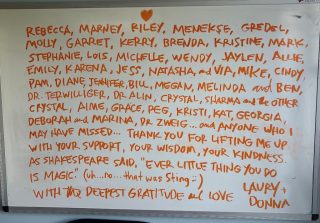 REBECCA, MARNEY, RILEY, MENEKSE, GREDEL,
MOLLY, GARRET, KERRY, BRENDA, KRISTINE, MARK,
STEPHANIE, LOIS, MICHELLE, WENDY, JAYLEN, ALLIE,
EMILY, KARENA, JESS, NATASHA and VIA, MIKE, CINDY,
PAM, DIANE, JENNIFER, BILL, MEGAN, MELINDA and BEN,
DR. TERWILLIGER, DR. ALIN, CRYSTAL, SHARMA and the OTHER
CRYSTAL, AIME, GRACE, PEG, KRISTI, KAT, GEORGIA,
DEBORAH and MARINA, DR. ZWEIG... and ANYONE WHO I
MAY HAVE MISSED... THANK YOU FOR LIFTING ME UP
WITH YOUR SUPPORT, YOUR WISDOM, YOUR KINDNESS.
AS SHAKESPEARE SAID, "EVER LITTLE THING YOU DO
IS MAGIC" (uh...no...that was Sting :-)
WITH THE DEEPEST GRATITUDE and LOVE LAURY +
DONNA